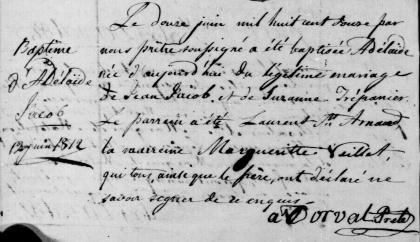 Baptême
d'Adélaïde
Jacob
12 juin 1812
Le douze juin mil huit cent douze par
nous prêtre soussigné a été baptisée Adélaïde
née d'aujourd'hui du légitime mariage
de Jean Jacob, et de Suzanne Trépanier
Le parrein a été Laurent St Arnaud
la marreine Margueritte Veillet,
qui tous ainsi que le père, ont déclaré ne
savoir signer de ce enquis
Dorval Ptre